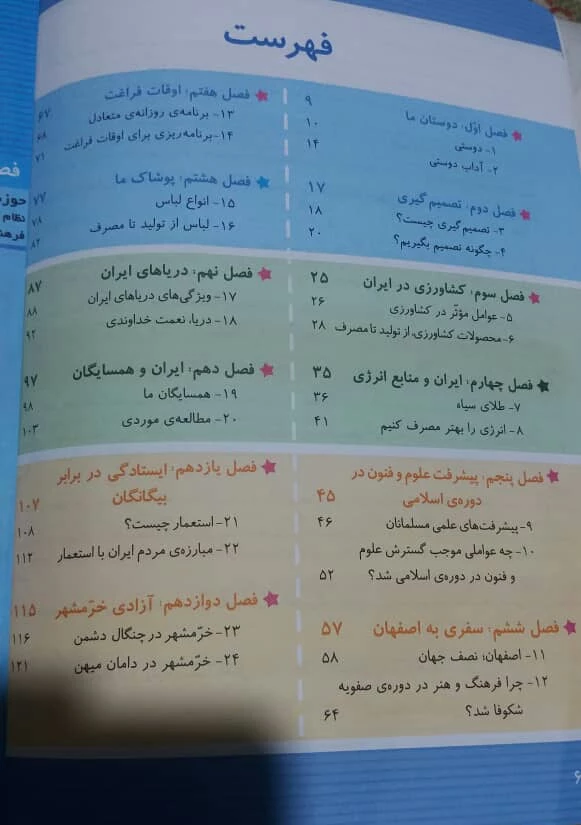 فهرست
فصل اوّل: دوستان ما ۹
۱- دوستی ۱۰
۲- آداب دوستی ۱۴
فصل دوم: تصمیم گیری ۱۷
۳- تصمیم گیری چیست؟ ۱۸
۴- چگونه تصمیم بگیریم؟ ۲۰
فصل سوم: کشاورزی در ایران ۲۵
۵- عوامل مؤثّر در کشاورزی ۲۶
۶- محصولات کشاورزی، از تولید تا مصرف ۲۸
فصل چهارم: ایران و منابع انرژی ۳۵
۷- طلای سیاه ۳۶
۸- انرژی را بهتر مصرف کنیم ۴۱
فصل پنجم: پیشرفت علوم و فنون در
دوره‌ی اسلامی ۴۵
۹- پیشرفت‌های علمی مسلمانان ۴۶
۱۰- چه عواملی موجب گسترش علوم
و فنون در دوره‌ی اسلامی شد؟ ۵۲
فصل ششم: سفری به اصفهان ۵۷
۱۱- اصفهان؛ نصف جهان ۵۸
۱۲- چرا فرهنگ و هنر در دوره‌ی صفویه
شکوفا شد؟ ۶۴
فصل هفتم: اوقات فراغت ۶۷
۱۳- برنامه‌ی روزانه‌ی متعادل ۶۸
۱۴- برنامه‌ریزی برای اوقات فراغت ۷۱
فصل هشتم: پوشاک ما ۷۷
۱۵- انواع لباس ۷۸
۱۶- لباس از تولید تا مصرف ۸۲
فصل نهم: دریاهای ایران ۸۷
۱۷- ویژگی‌های دریاهای ایران ۸۸
۱۸- دریا، نعمت خداوندی ۹۲
فصل دهم: ایران و همسایگان ۹۷
۱۹- همسایگان ما ۹۸
۲۰- مطالعه‌ی موردی ۱۰۳
فصل یازدهم: ایستادگی در برابر
بیگانگان ۱۰۷
۲۱- استعمار چیست؟ ۱۰۸
۲۲- مبارزه‌ی مردم ایران با استعمار ۱۱۲
فصل دوازدهم: آزادی خرّمشهر ۱۱۵
۲۳- خرّمشهر در چنگال دشمن ۱۱۶
۲۴- خرّمشهر در دامان میهن ۱۲۱
۶
فص
حوز
نظام
فرهن